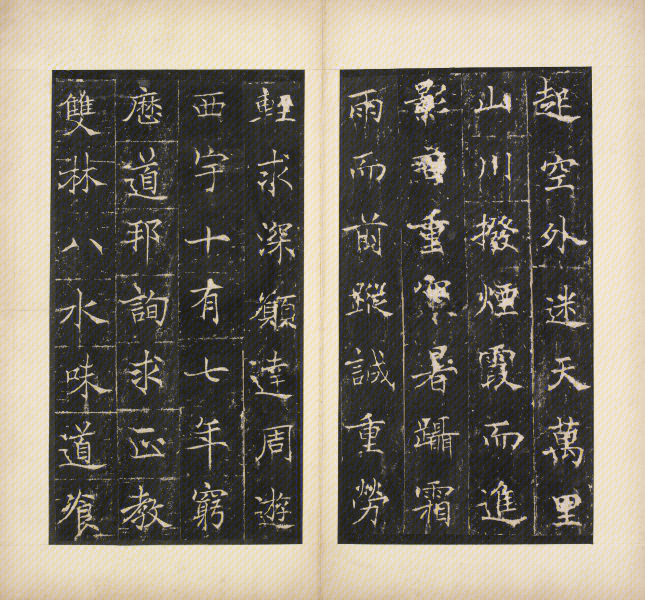 起空外迷天萬里
山川撥煙霞而進
影重寒暑躡霜
雨而前蹤誠重勞
輕求深願達周遊
西宇十有七年窮
歷道邦詢求正教
雙林八水味道飡